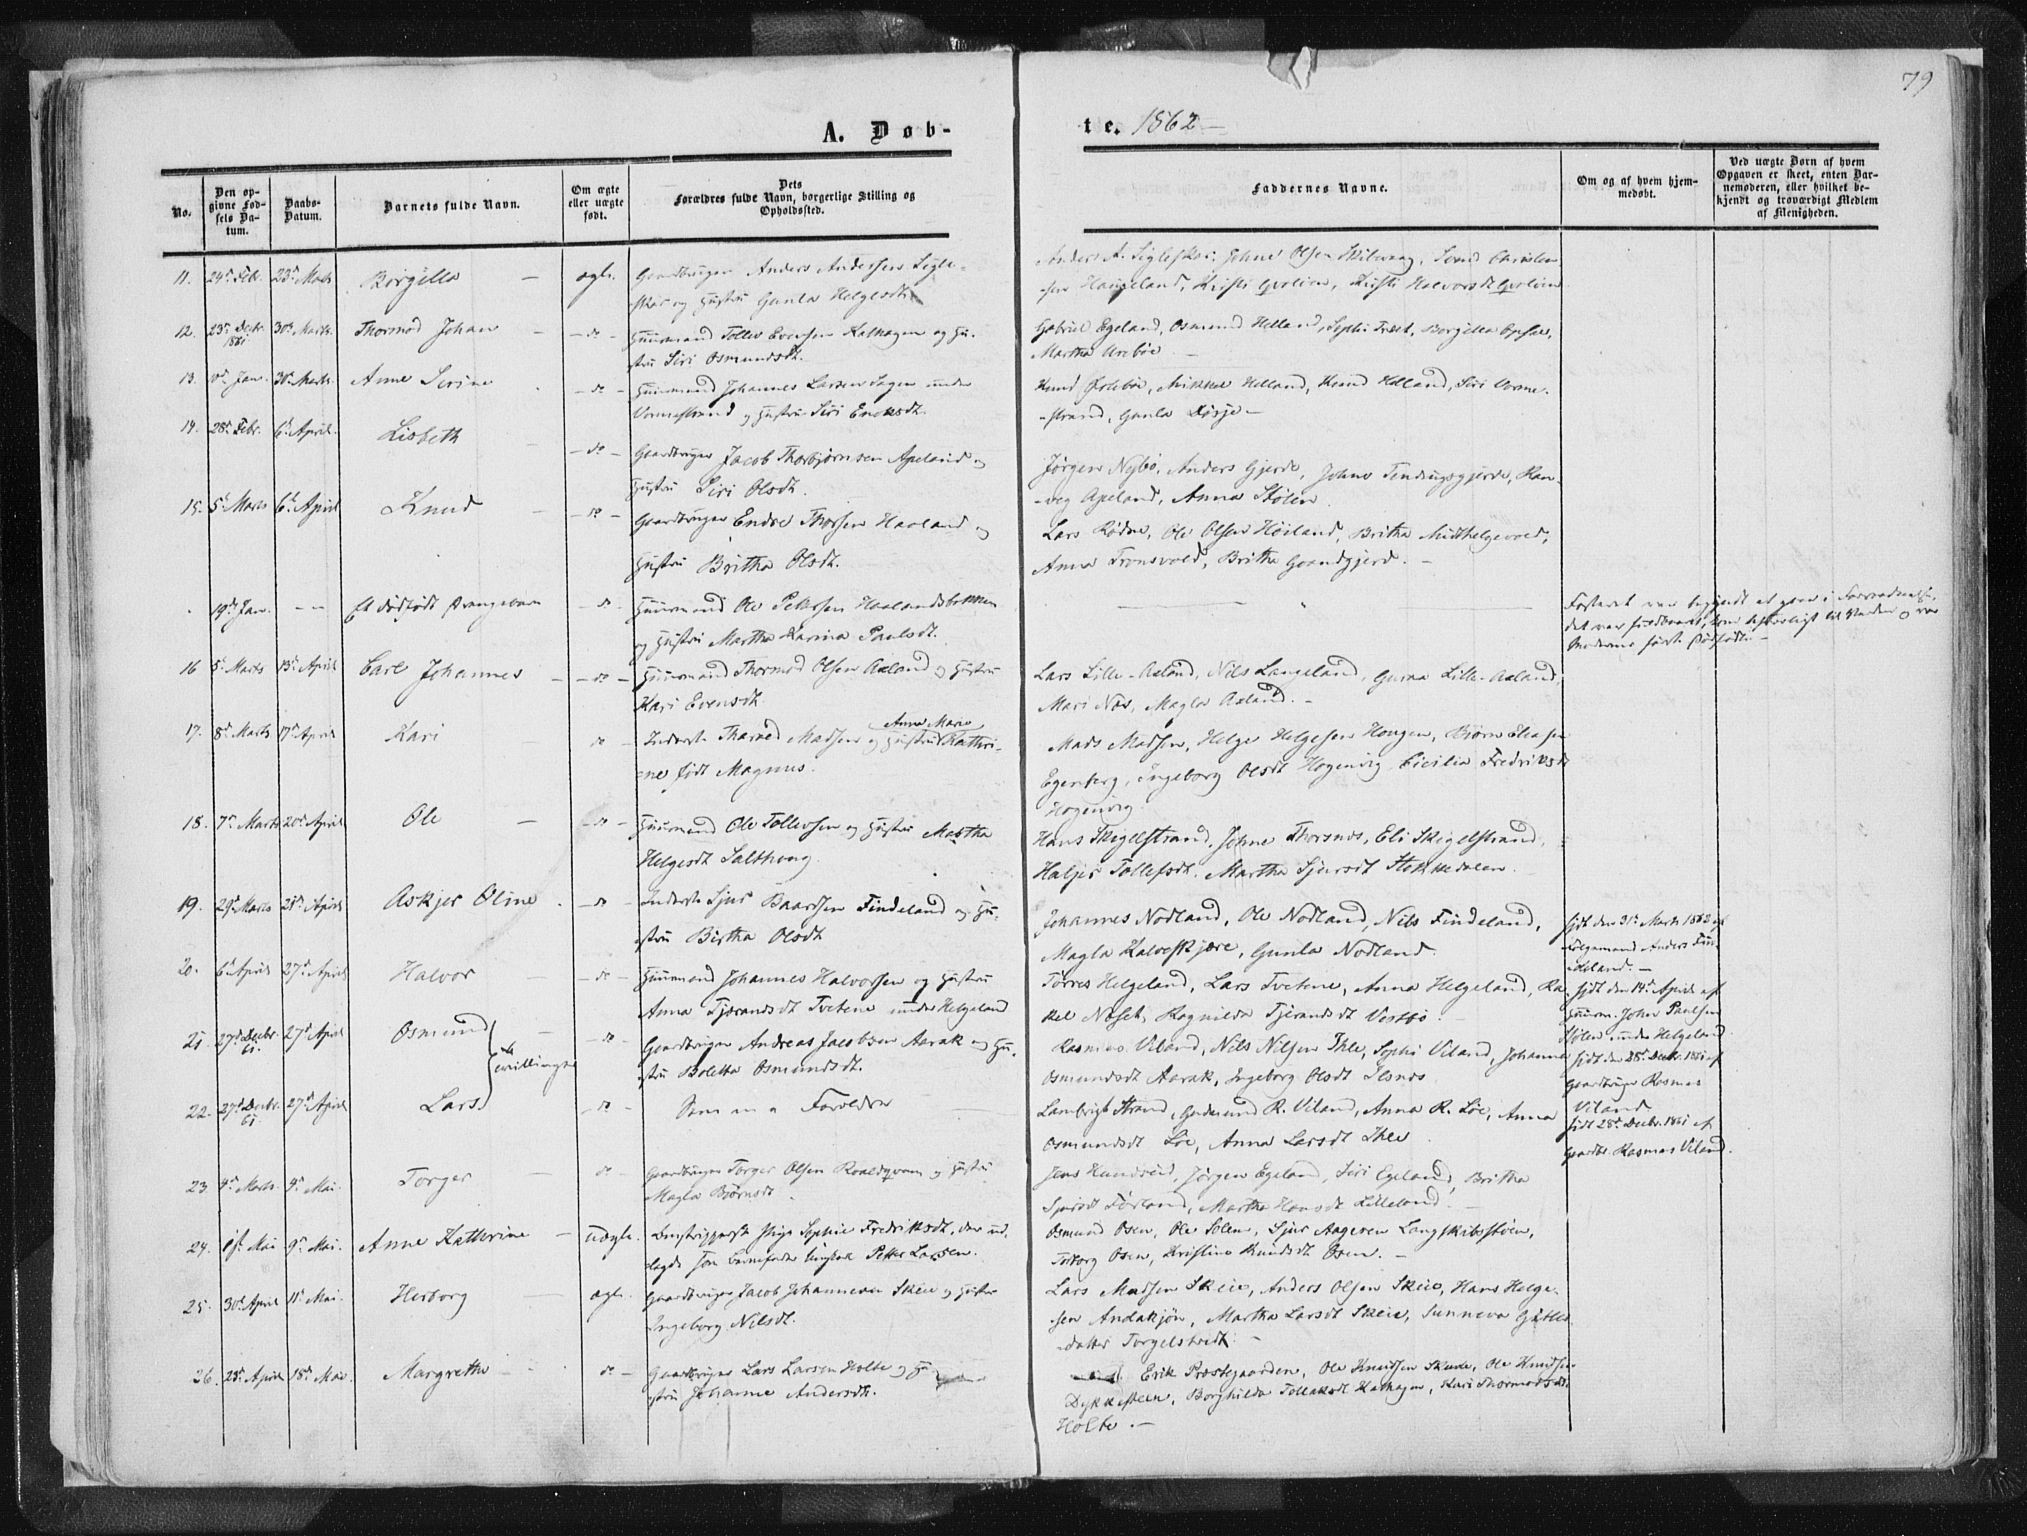 79
A. Døb-
te. 1862 –
No.
Den op-
givne Fød-
sels Da-
tum.
Daabs-
Datum.
Barnets fulde Navn.
Om ægte
eller uægte
født.
Dets
Forældres fulde Navn, borgerlige Stilling og
Opholdssted.
Faddernes Navne.
Om og af hvem hjem-
medøbt.
Ved uægte Børn af hvem
Opgaven er skeet, enten Bar-
nemoderen, eller hvilket be-
kjendt og troværdigt Medlem
af Menigheden.
11. 24de Febr. 23de Marts Børgilla – ægte. Gaardbruger Anders Andersen Sigle-
skar og Hustru Gunla Helgesdt.
Anders A. Sigleskar, Johne Olsen Skilvaag, Svend Christen-
sen Haugeland, Kristi Qvolien, Kristi Halvorsdt Qvolien.
12. 23de Decbr. 1861 30te Marts Thormod Johan – do – Huusmand Tollev Evensen Kalhagen og Hu-
stru Siri Osmundsdt.
Gabriel Egeland, Osmund Helland, Sophi Træet, Borgilla Opsal,
Martha Urebøe –
13. Jan. 30te Marts Anne Serine – do – Huusmand Johannes Larsen Hagen under
Vormestrand og Hustru Siri Eriksdt.
Knud Østebø, Mikkel Helland, Knud Helland, Siri Vorme-
strand, Gunla Dørje –
14. 28de Febr. 6te April Lisbeth – do – Gaardbruger Jacob Thorbjørnsen Apeland og
Hustru Siri Olsdt.
Jørgen Nybø, Anders Gjerde, Johne Tendingsgjerde, Ran-
veg Apeland, Anna Stølen
15. 5te Marts 6te April Knud – do – Gaardbruger Endre Thorsen Havland og
Hustru Britha Olsdt.
Lars Rødne, Ole Olsen Høiland, Britha Midthelgevold,
Anna Tronsvold, Britha Grandgjerd. –
19de Jan. – – Et dødfødt Drengebarn – do – Huusmand Ole Pedersen Haalandsbakken
og Hustru Martha Karina Paulsdt.
Fosteret var begyndt at gaae i Forraadnelse,
det var fuldbaaret, kom til Verden og var
Moderens første Dødfødte. –
16 5te Marts 13de April Carl Johannes – do – Huusmand Thormod Olsen Axland og Hustru
Kari Evensdt.
Lars Lille-Axland, Nils Langeland, Gurna Lille-Axland,
Mari Næs, Magla Axland. –
17. 8de Marts 17de April Kari do – Inderste Tharald Madsen og Hustru Anna Marie Kathri-
ne født Magnus.
Mads Madsen, Helge Helgesen Hougen, Bjørn Eliasen
Egenberg, Ingeborg Olsdt Hogenvig Cicilia Fredriksdt
Hogenvig
18. 7de Marts 20de April Ole – do – Huusmand Ole Tollevsen og Hustru Martha
Helgesdt Salthong
Hans Skigelstrand, Johne Thorsnes, Eli Skigelstrand,
Haljer Tollefsdt. Martha Sjursdt Stokkedalen.
19. 29de Marts 21de April Askjer Oline – do – Inderste Sjur Baardsen Findeland og Hu-
stru Birtha Olsdt
Johannes Nodland, Ole Nodland, Nils Findeland,
Magla Kalveskjære, Gunla Nodland.
født den 31te Marts 1862 af
Følgemand Anders Fin-
deland. –
20. 6te April 27de April Halvor – do – Huusmand Johannes Halvorsen og Hustru
Anna Tjærandsdt Tvetene under Helgeland
Tørres Helgeland, Lars Tvetene, Anna Helgeland, Ra-
kel Neset, Ragnilda Tjerandsdt Vestbø.
født den 14de April af
Huusm. John Paulsen
Stølen under Helgeland
21. 27de Decbr. 61. 27de April Osmund – do – Gaardbruger Andreas Jacobsen Aarak og Hu-
stru Boletta Osmundsdt.
Tvillinger
Rasmus Viland, Nils Nilsen Ihle, Sophi Viland, Johanna
Osmundsdt Aarak, Ingeborg Olsdt Ilsnes
født den 28de Decbr. 1861 af
Gaardbruger Rasmus
Viland
22. 27de Decbr. 61. 27de April Lars do – Samme Forældre
Lambrigt Strand, Gudmund R. Viland, Anna R. Løe, Anna
Osmundsdt Løe, Anna Larsdt Ihle.
født 28de Decbr. 1861 af
Gaardbr. Rasmus Viland.
23. 4de Marts 9de Mai Torger – do – Gaardbruger Torger Olsen Roaldqvam og Hustru
Magla Bjørnsdt.
Jens Hundseid, Jørgen Egeland, Siri Egeland, Britha
Sjursdt Førland, Martha Hansdt Lilleland.
24. 1ste Mai 9de Mai. Anne Kathrine – uægte. Pige Sophie Fredriksdt, der ud-
lagde som Barnefader Ungkarl Petter Larsen.
Osmund Osen, Ole Solem, Sjur Aagesen Langskibsstøen,
Torborg Osen, Kristine Knudsdt Osen. –
25. 30te April 11te Mai. Herborg – ægte. Gaardbruger Jacob Johannesen Skeie og Hustru
Ingeborg Nilsdt.
Lars Madsen Skeie, Anders Olsen Skeie, Hans Helge-
sen Andakjøn, Martha Larsdt Skeie, Sunneva Gitles-
datter Torgelstveit. –
26. 23de April 18de Mai Margrethe – do – Gaardbruger Lars Larsen Holte og Hu-
stru Johanne Andersdt.
Erik Præstegaarden, Ole Knudsen Skeie, Ole Knudsen
Dykkesteen, Borghilda Tollaksdt Kalhagen, Kari Thormodsdt
Holte. –